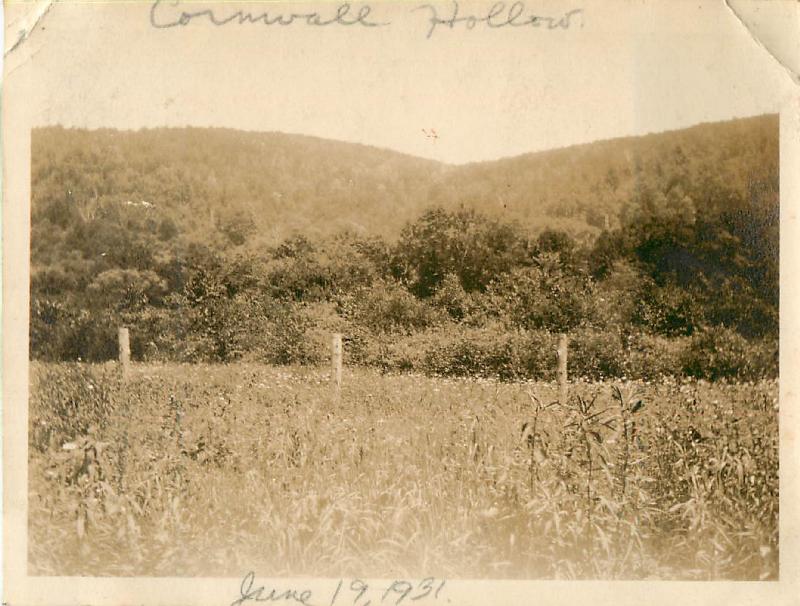 Cornwall Hollow.
June 19, 1931.